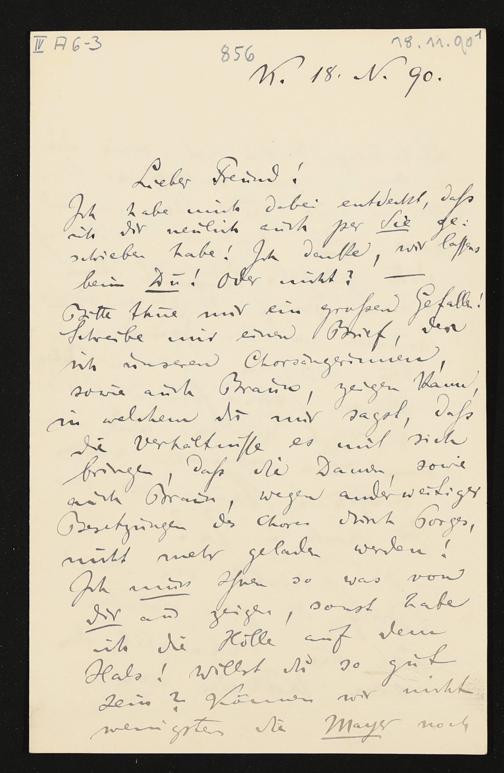 IV A 6-3
856
18.11.90¹
K. 18. N. 90.
Lieber Freund!
Ich habe mich dabei entdeckt, daß
ich dir neulich auch per Sie ge:
schrieben habe! Ich denke, wir lassen's
beim Du! Oder nicht? —
Bitte thue mir ein großen Gefallen!
Schreibe mir einen Brief, den
ich unseren Chorsängerinnen,
sowie auch Braun, zeigen kann,
in welchem du mir sagst, daß
die Verhältnisse es mit sich
bringen, daß die Damen, sowie
auch Braun, wegen anderweitiger
Besetzungen des Chores durch Porges,
nicht mehr geladen werden!
Ich muss Ihnen so was von
dir aus zeigen, sonst habe
ich die Hölle auf dem
Hals! Willst du so gut
sein? Können wir nicht
wenigstens die Mayer noch